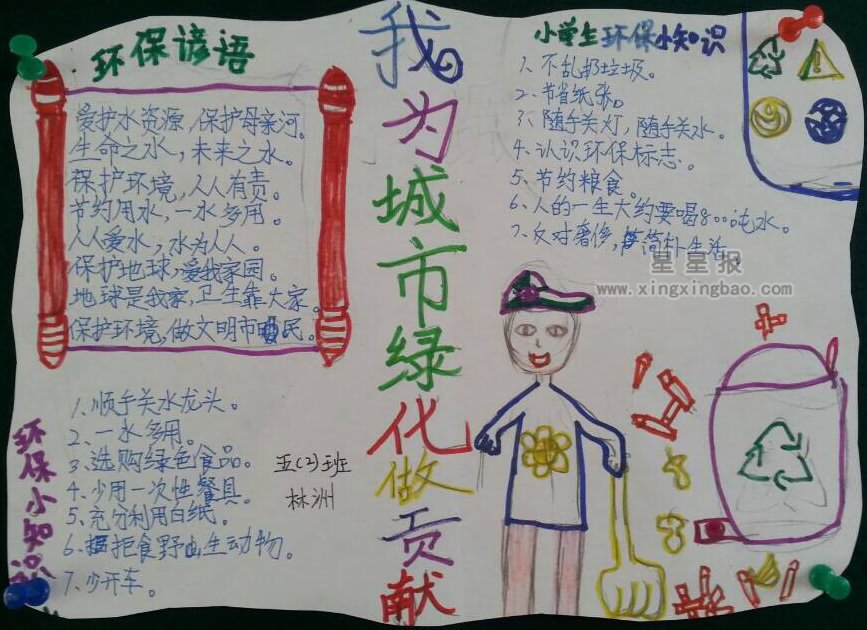 环保谚语
爱护水资源,保护母亲河。
生命之水,未来之水。
保护环境,人人有责。
节约用水,一水多用。
人人爱水,水为人人。
保护地球,爱我家园。
地球是我家,卫生靠大家。
保护环境,做文明市民。
环保小知识
1、顺手关水龙头。
2、一水多用。
3、选购绿色食品。
4、少用一次性餐具。
5、充分利用白纸。
6、拒食野生动物。
7、少开车。
五(2)班
林洲
我为城市绿化做贡献
小学生环保小知识
1、不乱扔垃圾。
2、节省纸张。
3、随手关灯,随手关水。
4、认识环保标志。
5、节约粮食。
6、人的一生大约要喝800吨水。
7、反对奢侈,简朴生活。
星星报
www.xingxingbao.com